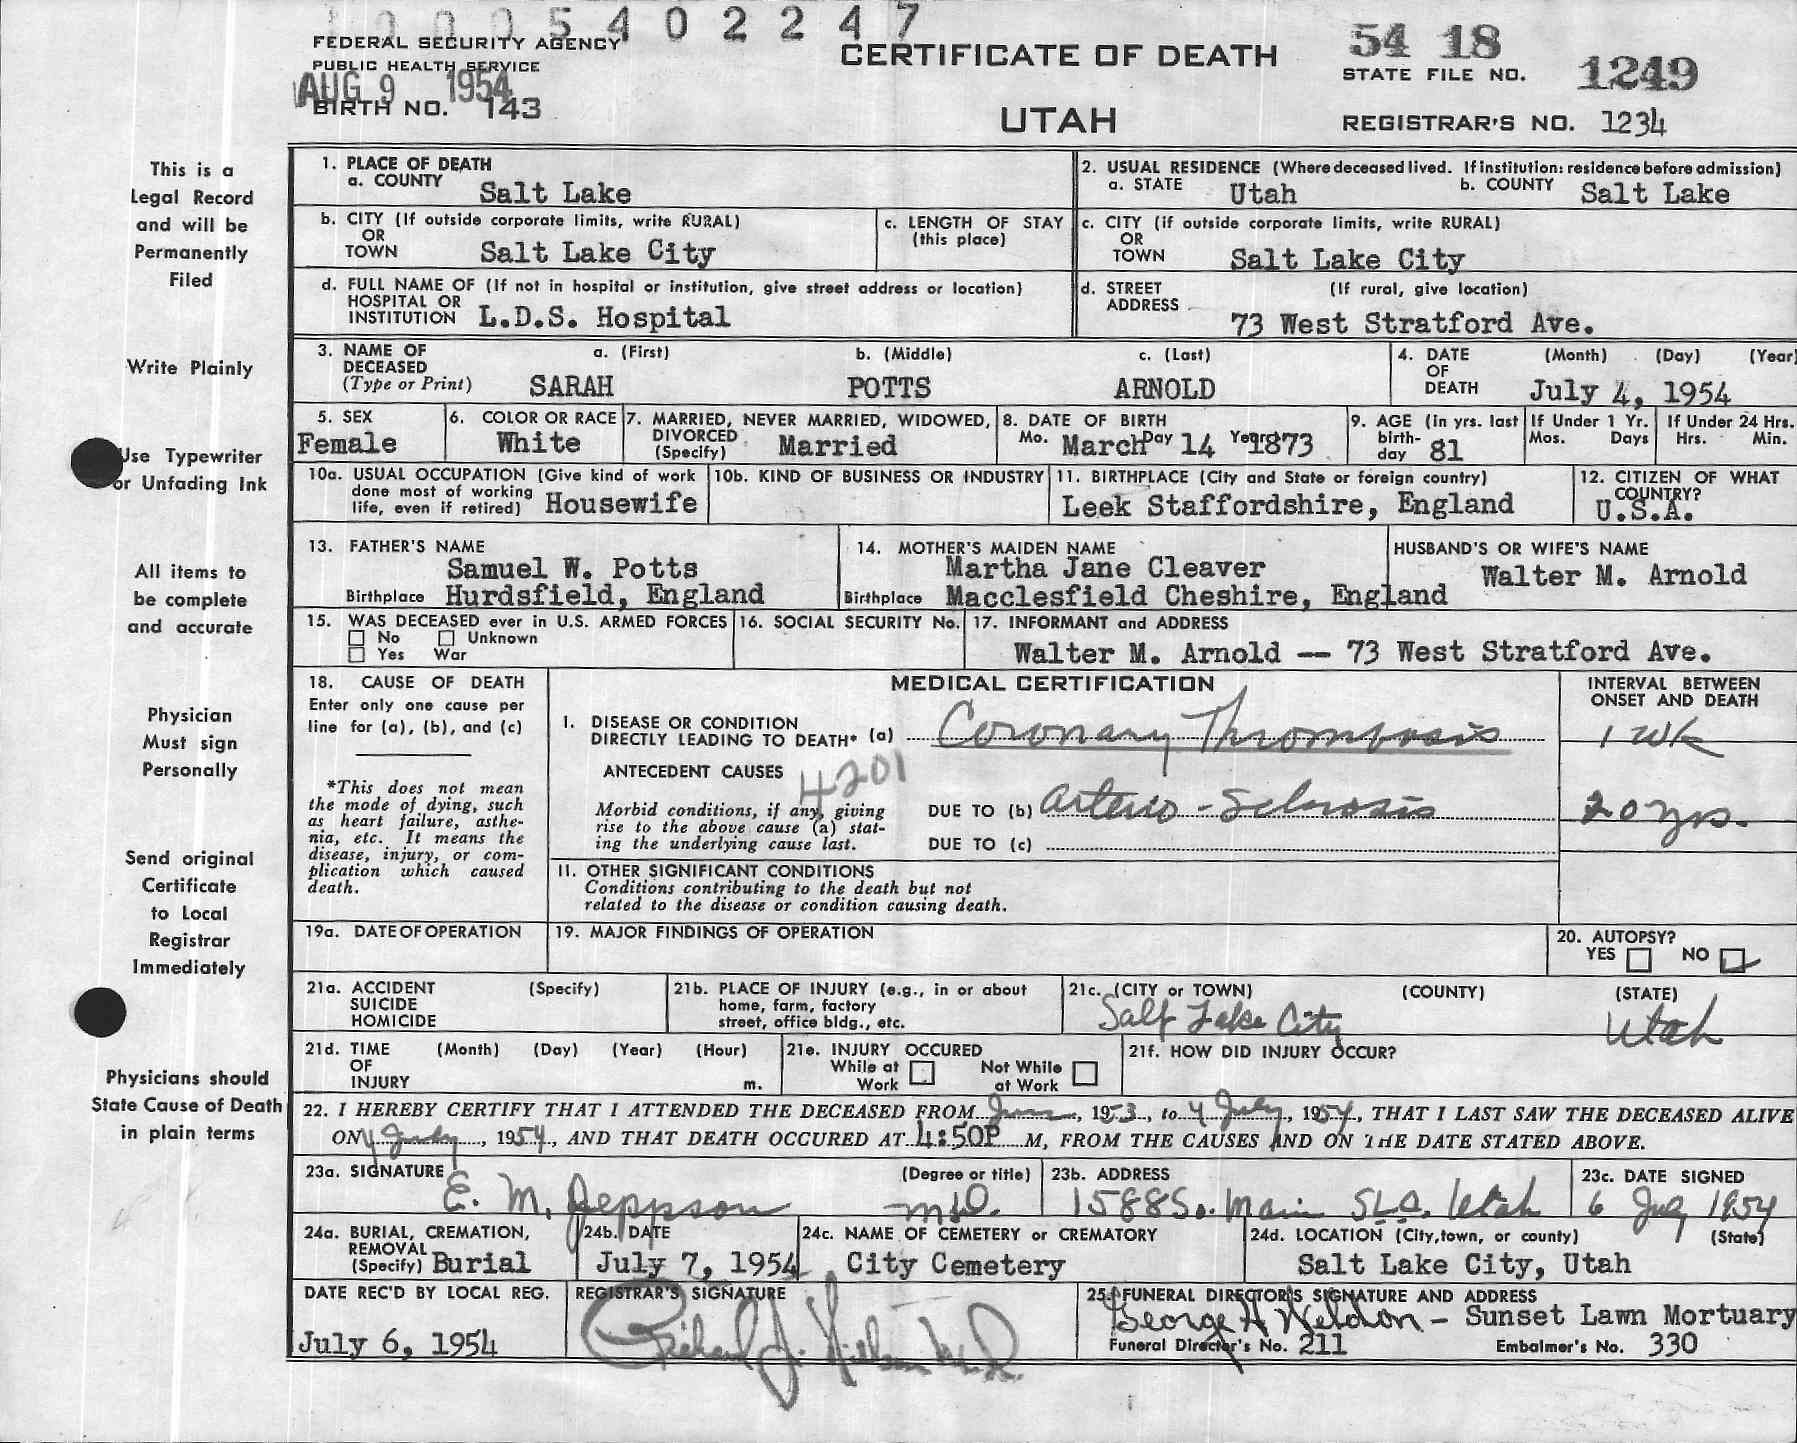 1000 5402247
FEDERAL SECURITY AGENCY
PUBLIC HEALTH SERVICE
AUG 9 1954
BIRTH NO. 143
CERTIFICATE OF DEATH
UTAH
54 18
STATE FILE NO. 1249
REGISTRAR'S NO. 1234
This is a
Legal Record
and will be
Permanently
Filed
Write Plainly
Use Typewriter
or Unfading Ink
All items to
be complete
and accurate
Physician
Must sign
Personally
Send original
Certificate
to Local
Registrar
Immediately
Physicians should
State Cause of Death
in plain terms
1. PLACE OF DEATH
a. COUNTY Salt Lake
2. USUAL RESIDENCE (Where deceased lived. If institution: residence before admission)
a. STATE Utah b. COUNTY Salt Lake
b. CITY (If outside corporate limits, write RURAL)
OR
TOWN Salt Lake City
c. LENGTH OF STAY
(this place)
c. CITY (if outside corporate limits, write RURAL)
OR
TOWN Salt Lake City
d. FULL NAME OF (If not in hospital or institution, give street address or location)
HOSPITAL OR
INSTITUTION L.D.S. Hospital
d. STREET (If rural, give location)
ADDRESS
73 West Stratford Ave.
3. NAME OF a. (First) b. (Middle) c. (Last)
DECEASED
(Type or Print) SARAH POTTS ARNOLD
4. DATE (Month) (Day) (Year)
OF
DEATH July 4, 1954
5. SEX
Female
6. COLOR OR RACE
White
7. MARRIED, NEVER MARRIED, WIDOWED,
DIVORCED
(Specify) Married
8. DATE OF BIRTH
Mo. March Day 14 Year 1873
9. AGE (in yrs. last
birth-
day 81
If Under 1 Yr.
Mos. Days
If Under 24 Hrs.
Hrs. Min.
10a. USUAL OCCUPATION (Give kind of work
done most of working
life, even if retired) Housewife
10b. KIND OF BUSINESS OR INDUSTRY
11. BIRTHPLACE (City and State or foreign country)
Leek Staffordshire, England
12. CITIZEN OF WHAT
COUNTRY?
U.S.A.
13. FATHER'S NAME
Samuel W. Potts
Birthplace Hurdsfield, England
14. MOTHER'S MAIDEN NAME
Martha Jane Cleaver
Birthplace Macclesfield Cheshire, England
HUSBAND'S OR WIFE'S NAME
Walter M. Arnold
15. WAS DECEASED ever in U.S. ARMED FORCES
No Unknown
Yes War
16. SOCIAL SECURITY No.
17. INFORMANT and ADDRESS
Walter M. Arnold -- 73 West Stratford Ave.
18. CAUSE OF DEATH
Enter only one cause per
line for (a), (b), and (c)
*This does not mean
the mode of dying, such
as heart failure, asthe-
nia, etc. It means the
disease, injury, or com-
plication which caused
death.
MEDICAL CERTIFICATION
INTERVAL BETWEEN
ONSET AND DEATH
I. DISEASE OR CONDITION
DIRECTLY LEADING TO DEATH* (a) Coronary Thrombosis 1 wk
ANTECEDENT CAUSES 4201
Morbid conditions, if any, giving
rise to the above cause (a) stat-
ing the underlying cause last.
DUE TO (b) Arterio-Sclerosis 20 yrs.
DUE TO (c)
11. OTHER SIGNIFICANT CONDITIONS
Conditions contributing to the death but not
related to the disease or condition causing death.
19a. DATE OF OPERATION
19. MAJOR FINDINGS OF OPERATION
20. AUTOPSY?
YES NO
21a. ACCIDENT (Specify)
SUICIDE
HOMICIDE
21b. PLACE OF INJURY (e.g., in or about
home, farm, factory
street, office bldg., etc.
21c. (CITY or TOWN) (COUNTY) (STATE)
Salt Lake City Utah
21d. TIME (Month) (Day) (Year) (Hour)
OF
INJURY m.
21e. INJURY OCCURED
While at Not While
Work at Work
21f. HOW DID INJURY OCCUR?
22. I HEREBY CERTIFY THAT I ATTENDED THE DECEASED FROM June, 1953, to 4 July, 1954, THAT I LAST SAW THE DECEASED ALIVE
ON 4 July, 1954, AND THAT DEATH OCCURED AT 4:50P M, FROM THE CAUSES AND ON THE DATE STATED ABOVE.
23a. SIGNATURE (Degree or title)
E. M. Jeppson M.D.
23b. ADDRESS
1588 So. Main S.L.C. Utah
23c. DATE SIGNED
6 July 1954
24a. BURIAL, CREMATION,
REMOVAL
(Specify) Burial
24b. DATE
July 7, 1954
24c. NAME OF CEMETERY or CREMATORY
City Cemetery
24d. LOCATION (City, town, or county) (State)
Salt Lake City, Utah
DATE REC'D BY LOCAL REG.
July 6, 1954
REGISTRAR'S SIGNATURE
Richard J. Nielsen M.D.
25. FUNERAL DIRECTOR'S SIGNATURE AND ADDRESS
George H Weldon - Sunset Lawn Mortuary
Funeral Director's No. 211 Embalmer's No. 330